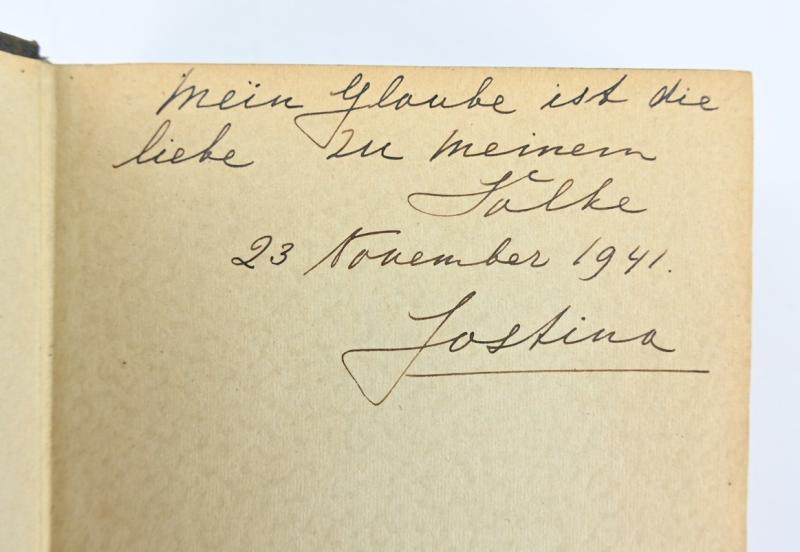 mein Glaube ist die
liebe zu meinem
Volke
23 November 1941.
Jostina